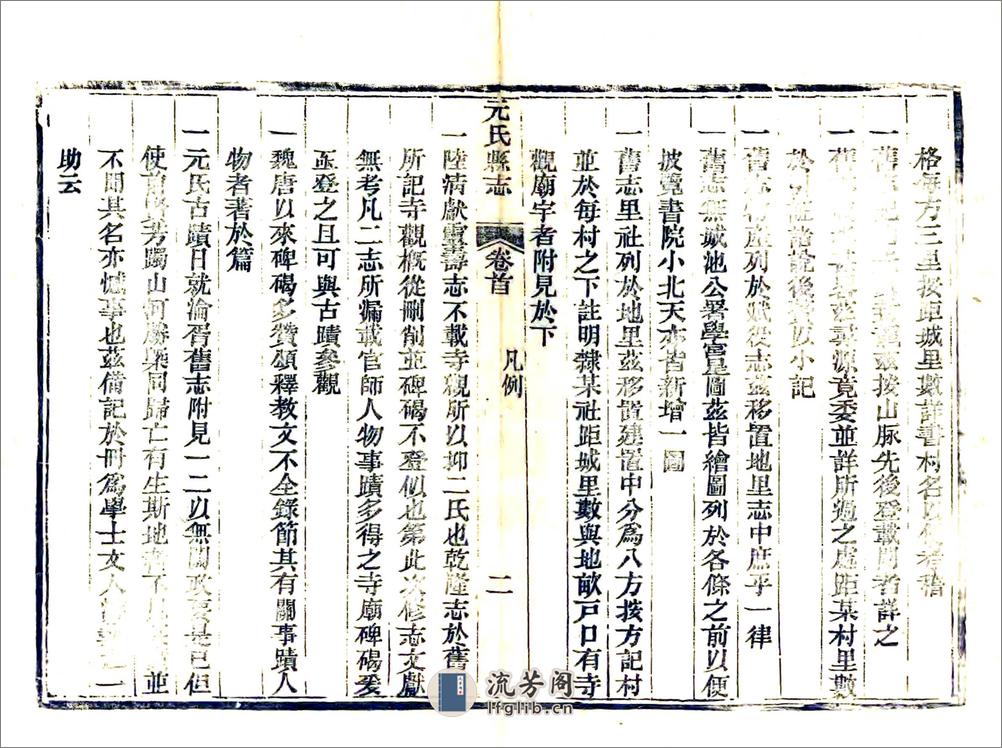 格每方三里按距城里數詳書村名以便考稽
一舊志
茲按山脈先後登載 者詳之
一舊
尋源竟委並詳所過之處距某村里數
於 後 以小記
一舊志物產列於賦役志茲移置地里志中庶乎一律
一舊志無城池公署學宮星圖茲皆繪圖列於各條之前以便
披覽書院小北天亦皆新增一圖
一舊志里社列於地里茲移置建置中分爲八方按方記村
並於每村之下註明隸某社距城里數與地畝戸口有寺
觀廟宇者附見於下
元氏縣志
卷首
凡例
二
一陸清獻靈壽志不載寺觀所以抑二氏也乾隆志於舊
所記寺觀概從刪削並碑碣不登似也第此次修志文獻
無考凡二志所漏載官師人物事蹟多得之寺廟碑碣爰
亟登之且可與古蹟參觀
一魏唐以來碑碣多贊頌釋教文不全錄節其有關事蹟人
物者著於篇
一元氏古蹟日就淪胥舊志附見一二以無關政要是已但
使 芳躅山河勝槩同歸 亡有生斯地者 並
不聞其名亦憾事也茲備記於冊爲學士文人 一
助云
流芳阁
lfglib.cn